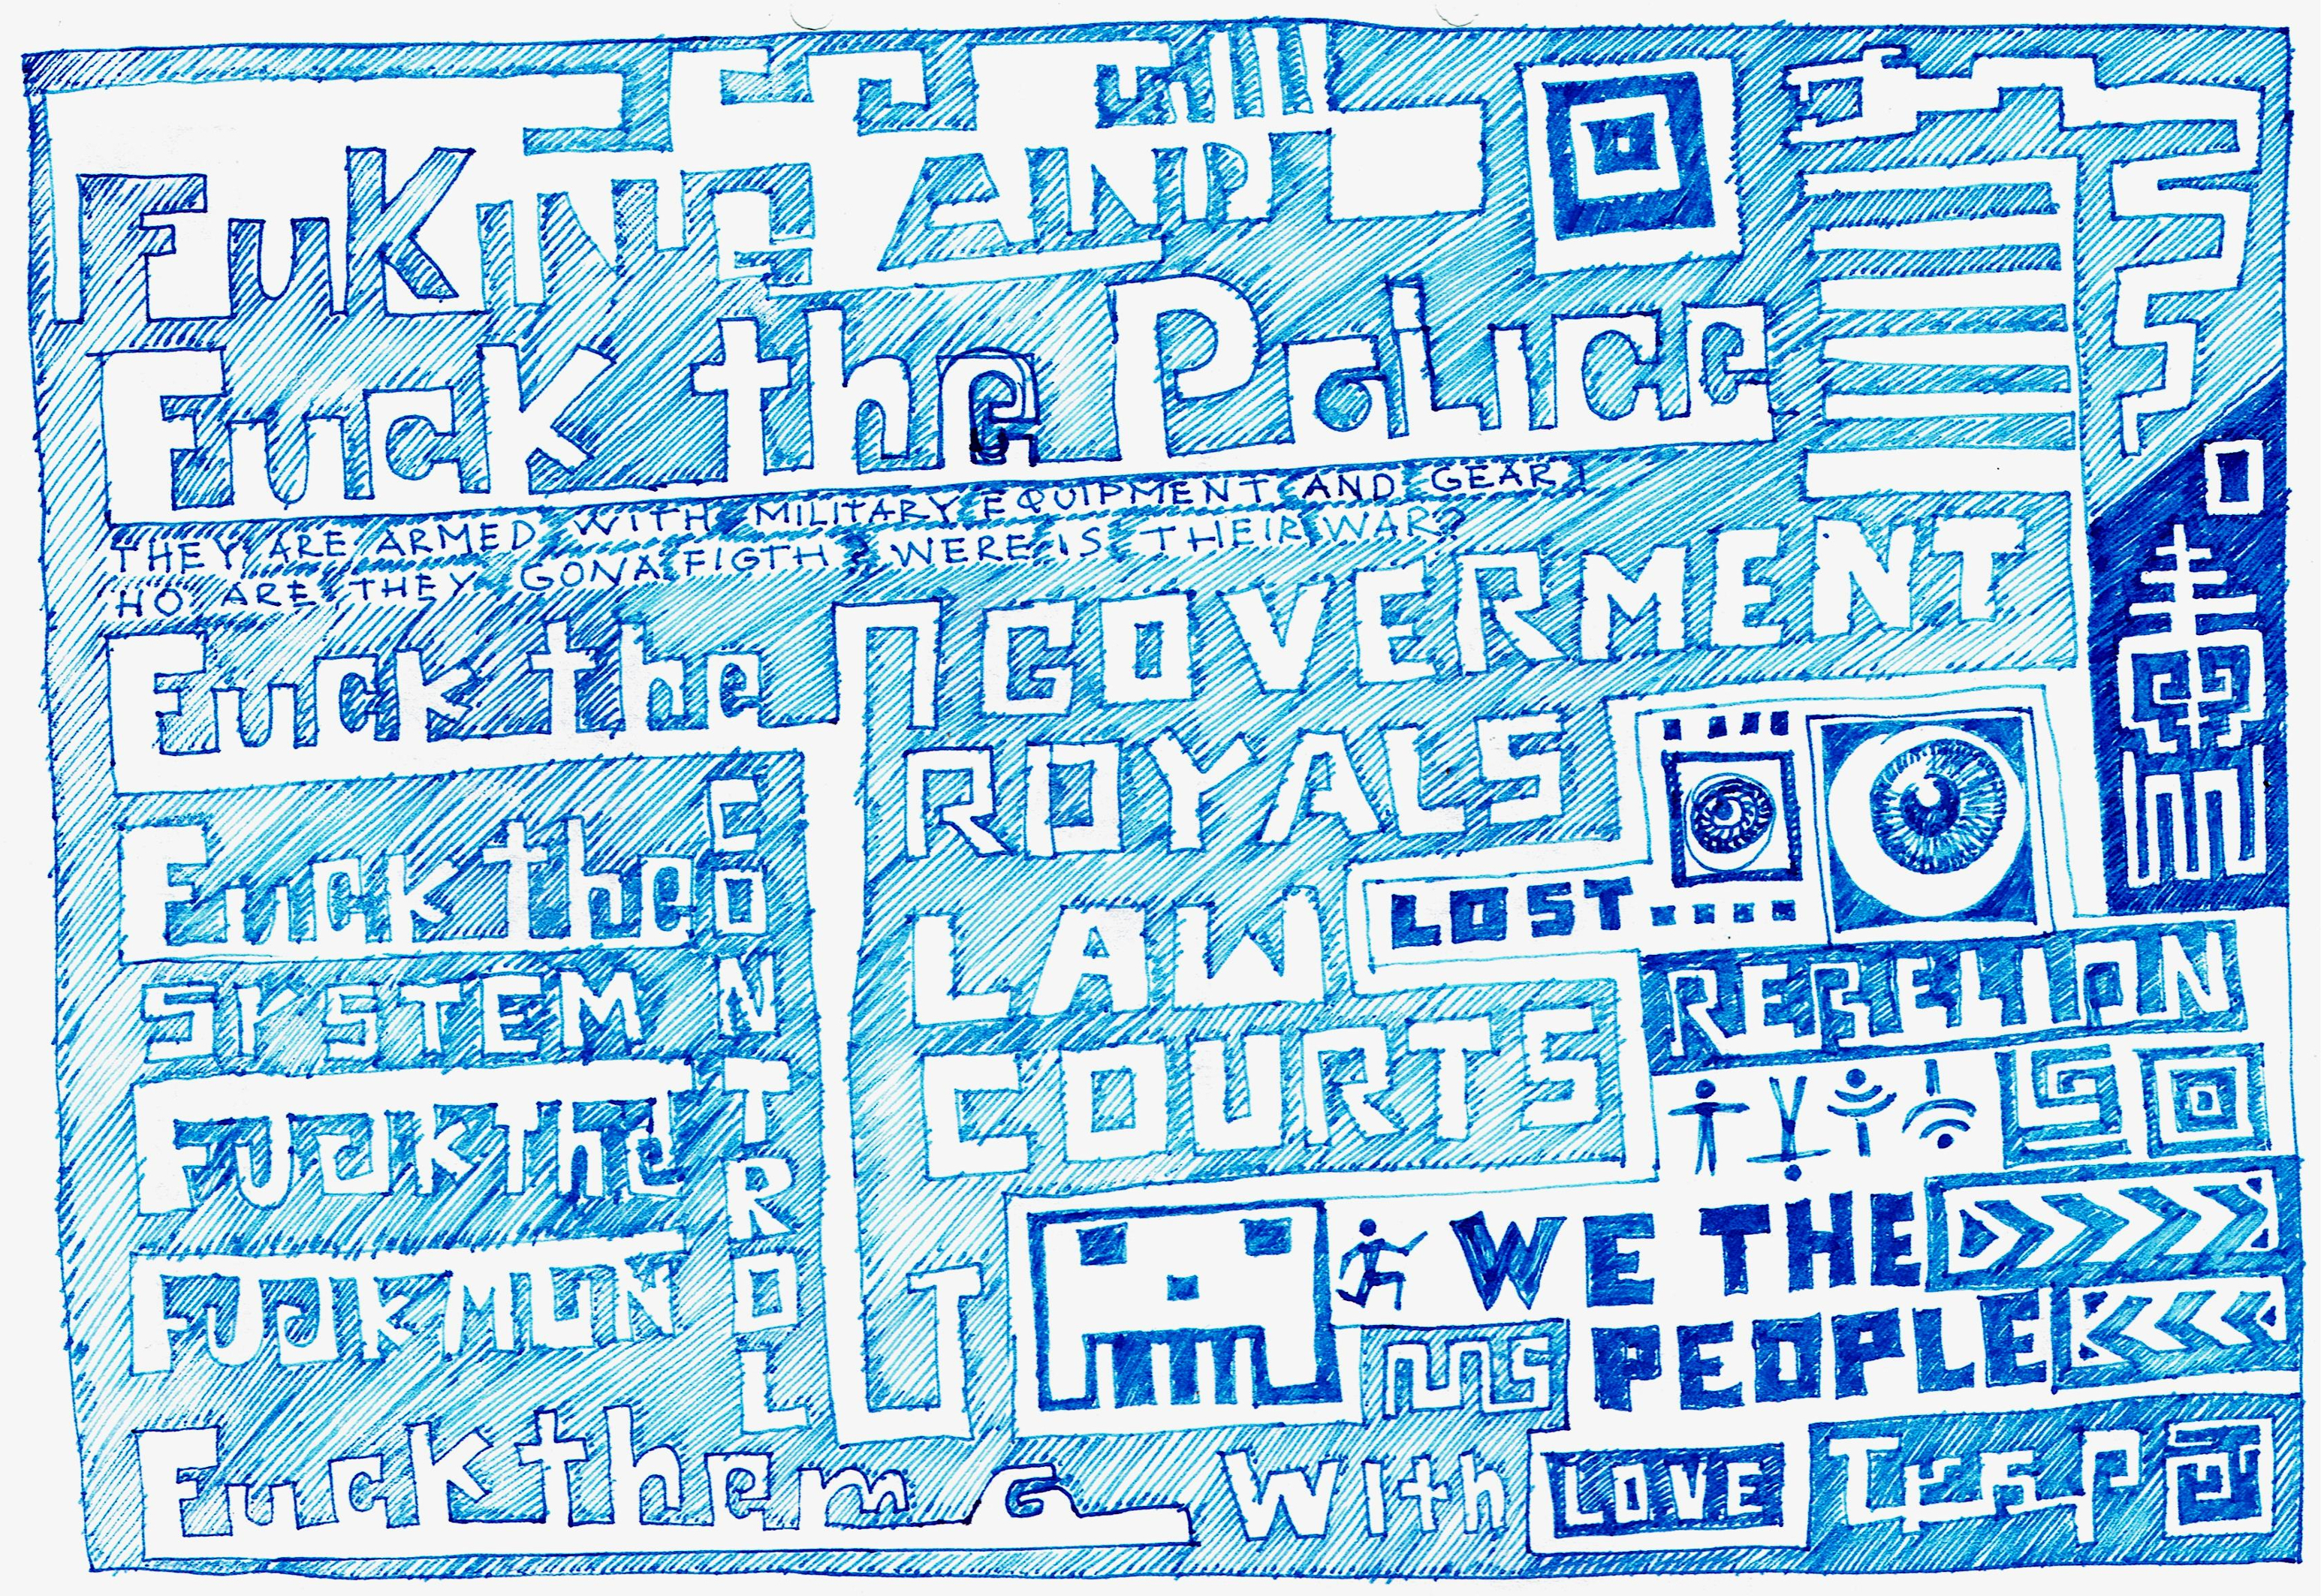 FuKING AND
Fuck the PoLice
THEY ARE ARMED WITH MILITARY EQUIPMENT AND GEAR!
HO ARE THEY GONA FIGTH? WERE IS THEIR WAR?
Fuck the GOVERMENT
ROYALS
LAW
COURTS
Fuck the
SYSTEM
CONTROL
Fuck the
FUCK MON
LOST
REBELION
WE THE
PEOPLE
Fuck them with LOVE